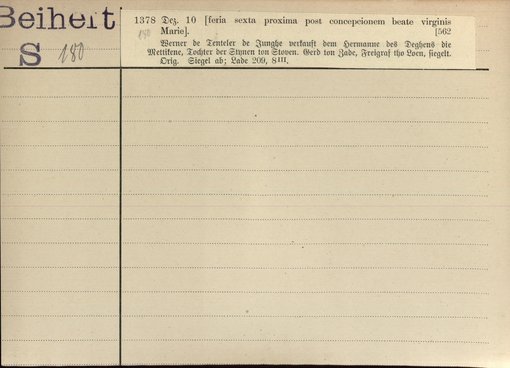 Beiheft
S 180
1378 Dez. 10 [feria sexta proxima post concepcionem beate virginis
180 Marie]. [562
Werner de Tenteler de Junghe verkauft dem Hermanne des Deghens die
Mettikene, Tochter der Stynen ton Stoven. Gerd ton Zade, Freigraf tho Loen, siegelt.
Orig. Siegel ab; Lade 209, 8 III.